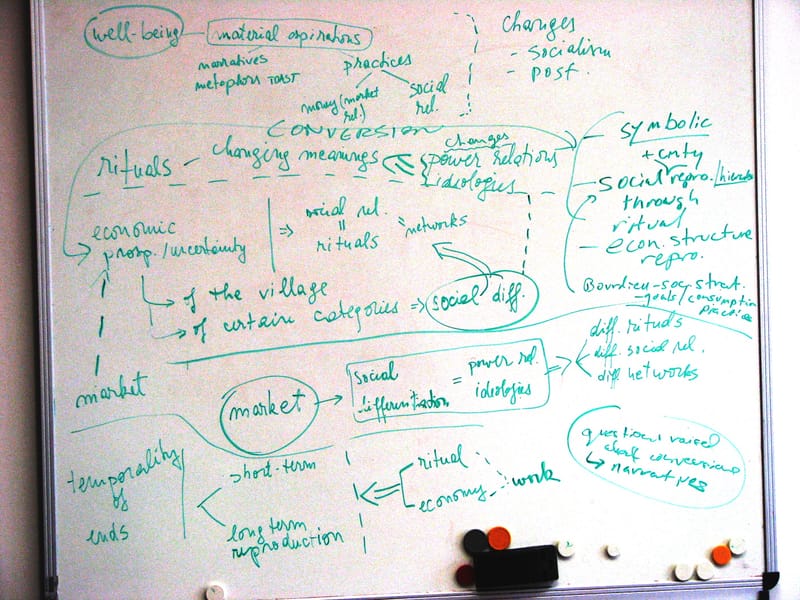 well-being
material aspirations
narratives
metaphors TOAST
practices
money (market
rel.)
social
rel.
changes
- socialism
- post.
CONVERSION
rituals - changing meanings
changes
power relations
ideologies
- symbolic
+ cmty
- social repro./hierarch
through
ritual
- econ. structure
repro.
Bourdieu - soc. strat.
- goals/consumption
practice
economic
prosp./uncertainty
=> social rel.
=
rituals
= networks
of the village
of certain categories => social diff.
market
market
social
differentiation
= power rel.
ideologies
=>
diff. rituals
diff. social rel.
diff. networks
questions raised
about conversions
narratives
temporality
of
ends
short-term
long term
reproduction
ritual
economy
work